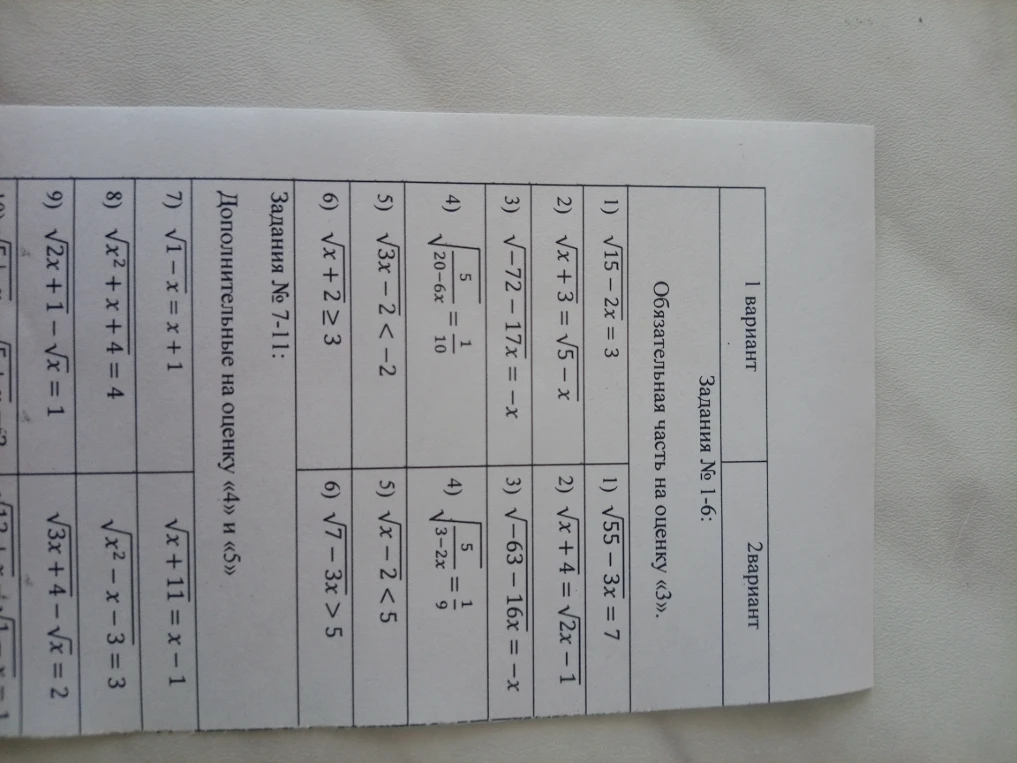 1 вариант 2вариант
Задания № 1-6:
Обязательная часть на оценку «3».
1) √15 − 2x = 3 1) √55 − 3x = 7
2) √x + 3 = √5 − x 2) √x + 4 = √2x − 1
3) √−72 − 17x = −x 3) √−63 − 16x = −x
4) √5/20−6x = 1/10 4) √5/3−2x = 1/9
5) √3x − 2 < −2 5) √x − 2 < 5
6) √x + 2 ≥ 3 6) √7 − 3x > 5
Задания № 7-11:
Дополнительные на оценку «4» и «5»
7) √1 − x = x + 1 √x + 11 = x − 1
8) √x² + x + 4 = 4 √x² − x − 3 = 3
9) √2x + 1 − √x = 1 √3x + 4 − √x = 2